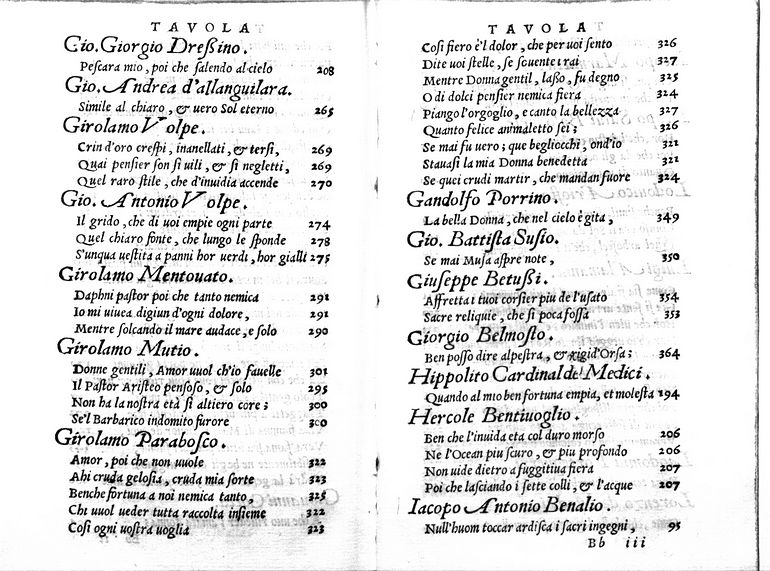 TAVOLA
Gio. Giorgio Dreſsino.
Peſcara mio, poi che ſalendo al cielo 208
Gio. Andrea d'allanguilara.
Simile al chiaro, & uero Sol eterno 265
Girolamo Volpe.
Crin d'oro creſpi, inanellati, & terſi, 269
Quai penſier ſon ſi uili, & ſi negletti, 269
Quel raro ſtile, che d'inuidia accende 270
Gio. Antonio Volpe.
Il grido, che di uoi empie ogni parte 274
Quel chiaro fonte, che lungo le ſponde 278
S'unqua ueſtita a panni hor uerdi, hor gialli 275
Girolamo Mentouato.
Daphni paſtor poi che tanto nemica 291
Io mi uiuea digiun d'ogni dolore, 291
Mentre ſolcando il mare audace, e ſolo 290
Girolamo Mutio.
Donne gentili, Amor uuol ch'io fauelle 301
Il Paſtor Ariſteo penſoſo, & ſolo 295
Non ha la noſtra età ſi altiero core; 300
Se'l Barbarico indomito furore 300
Girolamo Paraboſco.
Amor, poi che non uuole 322
Ahi cruda geloſia, cruda mia ſorte 323
Benche fortuna a noi nemica tanto, 325
Chi uuol ueder tutta raccolta inſieme 322
Coſi ogni uoſtra uoglia 323
TAVOLA
Coſi fiero è'l dolor, che per uoi ſento 326
Dite uoi ſtelle, ſe ſouente i rai 327
Mentre Donna gentil, laſſo, fu degno 325
O di dolci penſier nemica fiera 324
Piango l'orgoglio, e canto la bellezza 327
Quanto felice animaletto ſei; 326
Se mai fu uero; que begliocchi, ond'io 321
Stauaſi la mia Donna benedetta 321
Se quei crudi martir, che mandan fuore 324
Gandolfo Porrino.
La bella Donna, che nel cielo è gita, 349
Gio. Battiſta Suſio.
Se mai Muſa aſpre note, 350
Giuſeppe Betußi.
Affretta i tuoi corſier piu de l'uſato 354
Sacre reliquie, che ſi poca foſſa 353
Giorgio Belmoſto.
Ben poſſo dire alpeſtra, & rigid'Orſa; 364
Hippolito Cardinal de' Medici.
Quando al mio ben fortuna empia, et moleſta 194
Hercole Bentiuoglio.
Ben che l'inuida eta col duro morſo 206
Ne l'Ocean piu ſcuro, & piu profondo 206
Non uide dietro a fuggitiua fiera 207
Poi che laſciando i ſette colli, & l'acque 207
Iacopo Antonio Benalio.
Null'huom toccar ardiſca i ſacri ingegni, 95
Bb iii